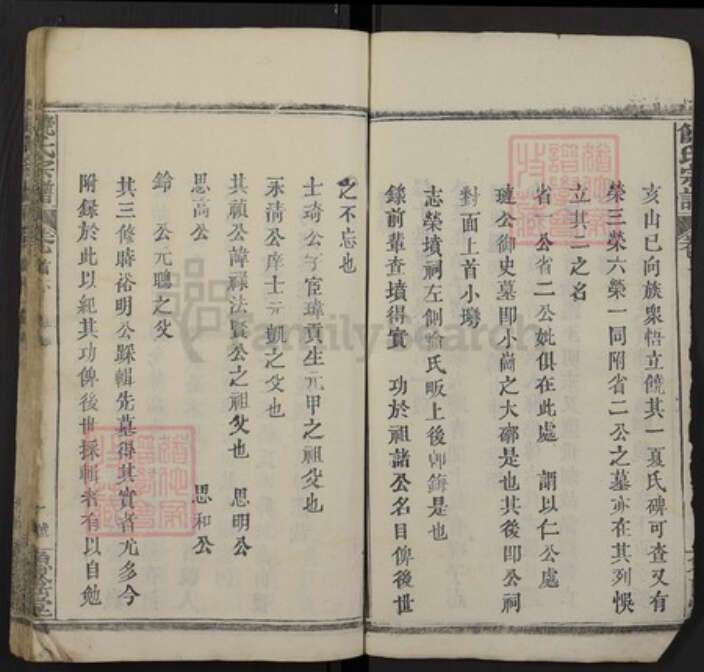 亥山巳向族衆悟立饒其一夏氏碑可查又有
榮三榮六榮一同附省二公之墓亦在其列悞
立其二之名
省一公省二公妣俱在此處 謂以仁公處
璉公御史墓即小崗之大鄉是也其後即公祠
對面上首小塆
志榮墳祠左側俞氏畈上後是也
錄前輩查墳得實 功於祖諸公名目俾後世
之不忘也
士琦公字宦瑋貢生元甲之祖父也
永清公庠士元凱之父也
其禎公諱祿法賢公之祖父也 思明公
思高公 思和公
鈴 公元聰之父
其三修時裕明公踩輯先墓得其實者尤多今
附錄於此以紀其功俾後世採輯者有以自勉
饒氏宗譜
FamilySearch